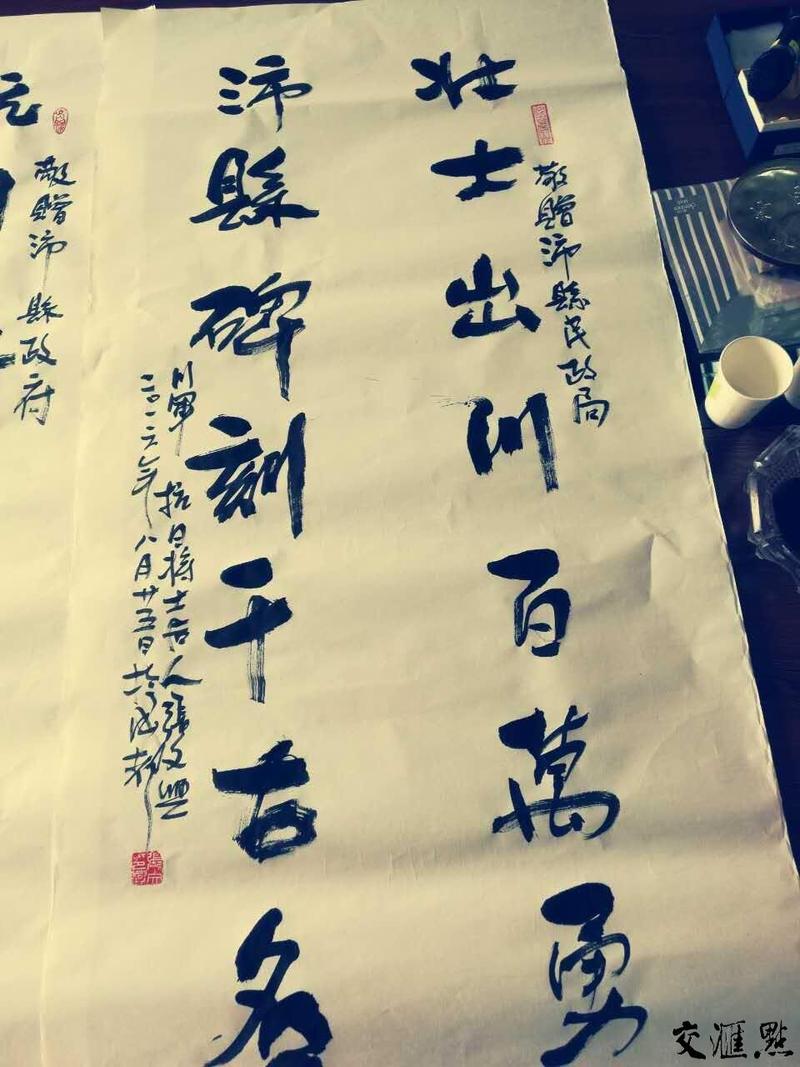 敬贈沛縣民政局
壯士出川百萬勇
沛縣碑刻千古名
川軍抗日将士后人張文興
二〇一六年八月廿五日於成都
敬贈沛縣政府
交滙點